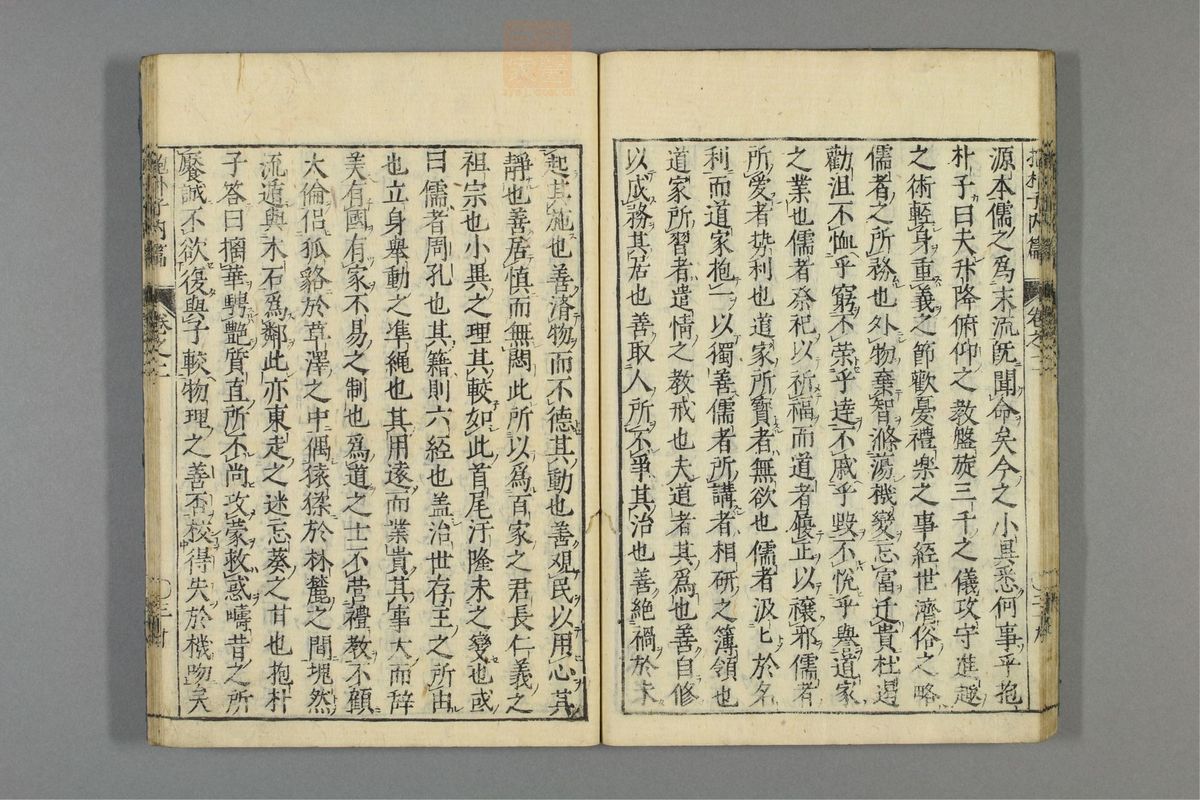 源本儒之爲末流旣聞命矣今之小異悉何事乎抱
朴子曰夫升降俯仰之教盤旋三千之儀攻守進趣
之術輕身重義之節歡憂禮樂之事經世濟俗之略
儒者之所務也外物棄智滌蕩機變忘富逸貴杜遏
勸沮不恤乎窮不榮乎達不戚乎毀不悅乎譽道家
之業也儒者祭祀以祈福而道者履正以禳邪儒者
所愛者勢利也道家所寳者無欲也儒者汲匕於名
利而道家抱一以獨善儒者所講者相研之簿領也
道家所習者遣情之教戒也夫道者其爲也善自修
以成務其居也善取人所不爭其治也善絶禍於未
起其施也善濟物而不德其動也善觀民以用心其
靜也善居慎而無悶此所以爲百家之君長仁義之
祖宗也小異之理其較如此首尾汙隆未之變也或
曰儒者周孔也其籍則六經也盖治世存正之所由
也立身舉動之準繩也其用遠而業貴其事大而辭
美有國有家不易之制也爲道之士不營禮教不顧
大倫侣狐貉於草澤之中偶猿猱於林麓之間塊然
流遁與木石爲鄰此亦東走之迷忘葵之甘也抱朴
子答曰摛華騁艷質直所不尚攻蒙救惑疇昔之所
饜誠不欲復與子較物理之善否校得失於機吻矣
抱朴子内篇 卷之二
抱朴子内篇 卷之二